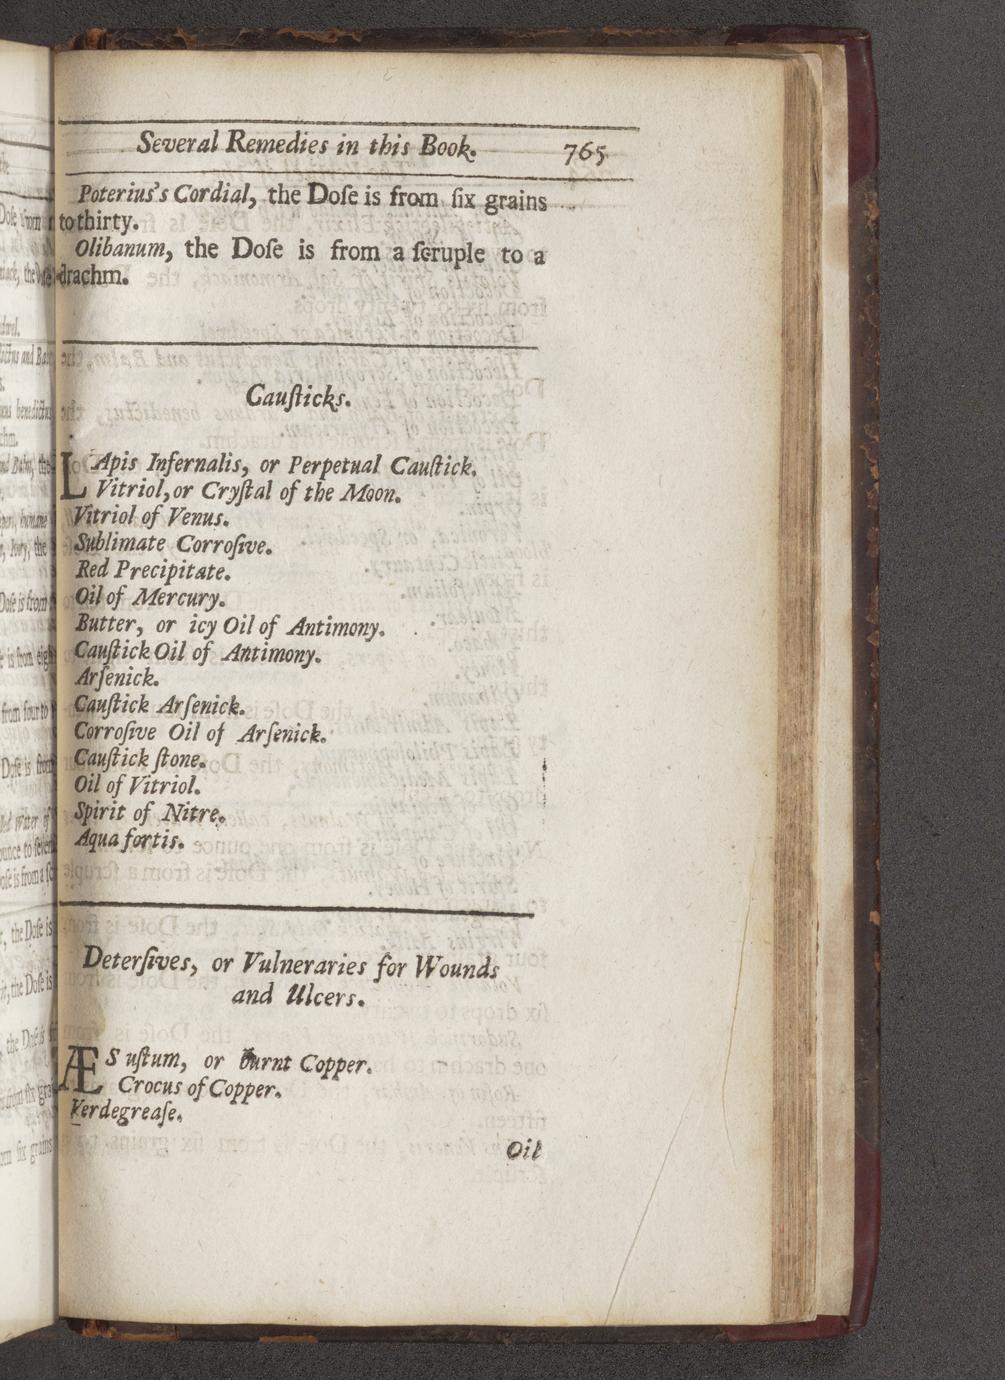 Several Remedies in this Book. 765
Poterius's Cordial, the Doſe is from ſix grains
to thirty.
Olibanum, the Doſe is from a ſcruple to a
drachm.
Cauſticks.
LApis Infernalis, or Perpetual Cauſtick.
Vitriol, or Cryſtal of the Moon.
Vitriol of Venus.
Sublimate Corroſive.
Red Precipitate.
Oil of Mercury.
Butter, or icy Oil of Antimony.
Cauſtick Oil of Antimony.
Arſenick.
Cauſtick Arſenick.
Corroſive Oil of Arſenick.
Cauſtick ſtone.
Oil of Vitriol.
Spirit of Nitre.
Aqua fortis.
Deterſives, or Vulneraries for Wounds
and Ulcers.
ÆS uſtum, or burnt Copper.
Crocus of Copper.
Verdegreaſe.
Oil